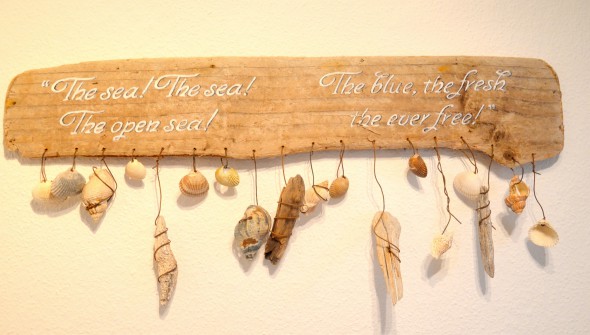 "The sea! The sea!
The open sea!
The blue, the fresh
the ever free!"